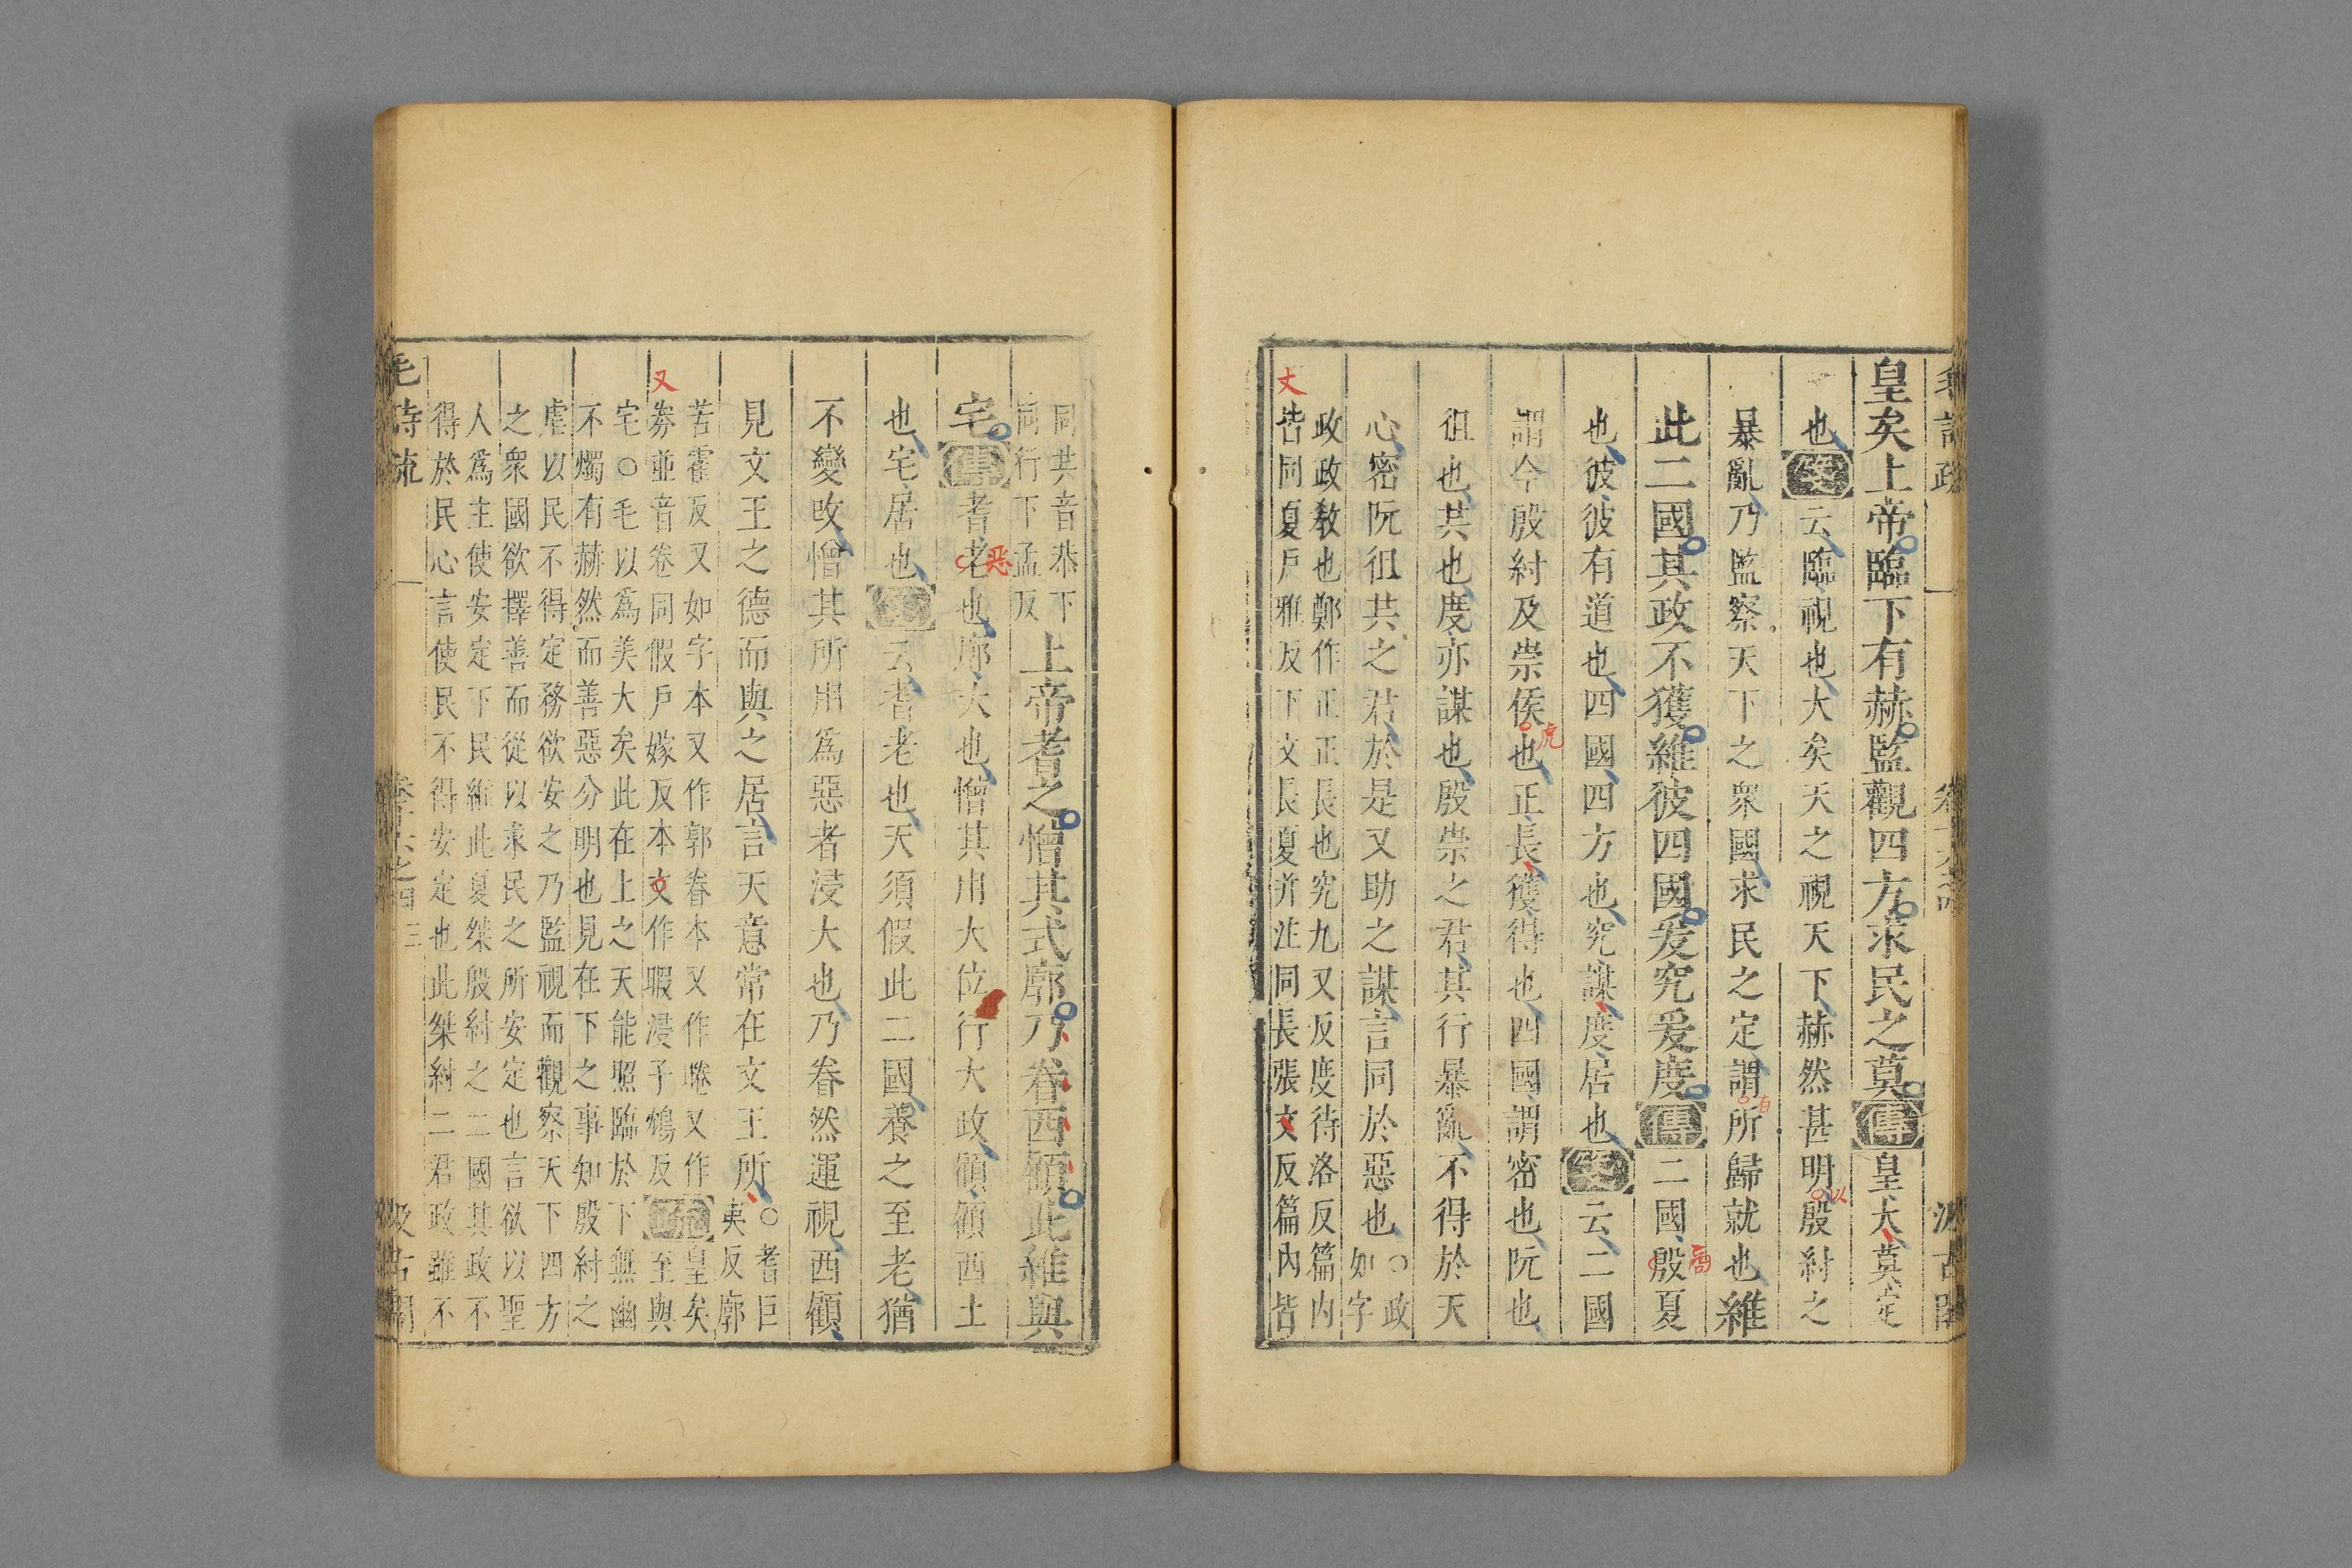 皇矣上帝臨下有赫監觀四方求民之莫傳皇大莫定
也箋云臨視也大矣天之視天下赫然甚明以殷紂之
暴亂乃監察天下之衆國求民之定謂有所歸就也維
此二國其政不獲維彼四國爰究爰度傳二國殷商夏
也彼彼有道也四國四方也究謀度居也箋云二國
謂今殷紂及崇侯虎也正長獲得也四國謂密也阮也
徂也共也度亦謀也殷崇之君其行暴亂不得於天
心密阮徂共之君於是又助之謀言同於惡也○政如字
政政教也鄭作正正長也究九又反度待洛反篇內
皆同夏戶雅反下文長夏并注同長張文反篇內皆
丈
同共音恭下
同行下孟反
上帝耆之憎其式廓乃眷西顧此維與
宅傳耆老惡也廓大也憎其用大位行大政顧顧西土
也宅居也箋云耆老也天須假此二國養之至老猶
不變改憎其所用為惡者浸大也乃眷然運視西顧
見文王之德而與之居言天意常在文王所○耆巨夷反廓
苦霍反又如字本又作郭眷本又作睠又作
又
劵並音卷同假戶嫁反本文作暇浸子鴆反疏皇矣至與
宅○毛以為美大矣此在上之天能照臨於下無幽
不燭有赫然而善惡分明也見在下之事知殷紂之
虐以民不得定務欲安之乃監視而觀察天下四方
之衆國欲擇善而從以求民之所安定也言欲以聖
人為主使安定下民維此夏桀殷紂之二國其政不
得於民心言使民不得安定也此桀紂二君政雖不
毛詩疏
卷十六之四
三
汲古閣